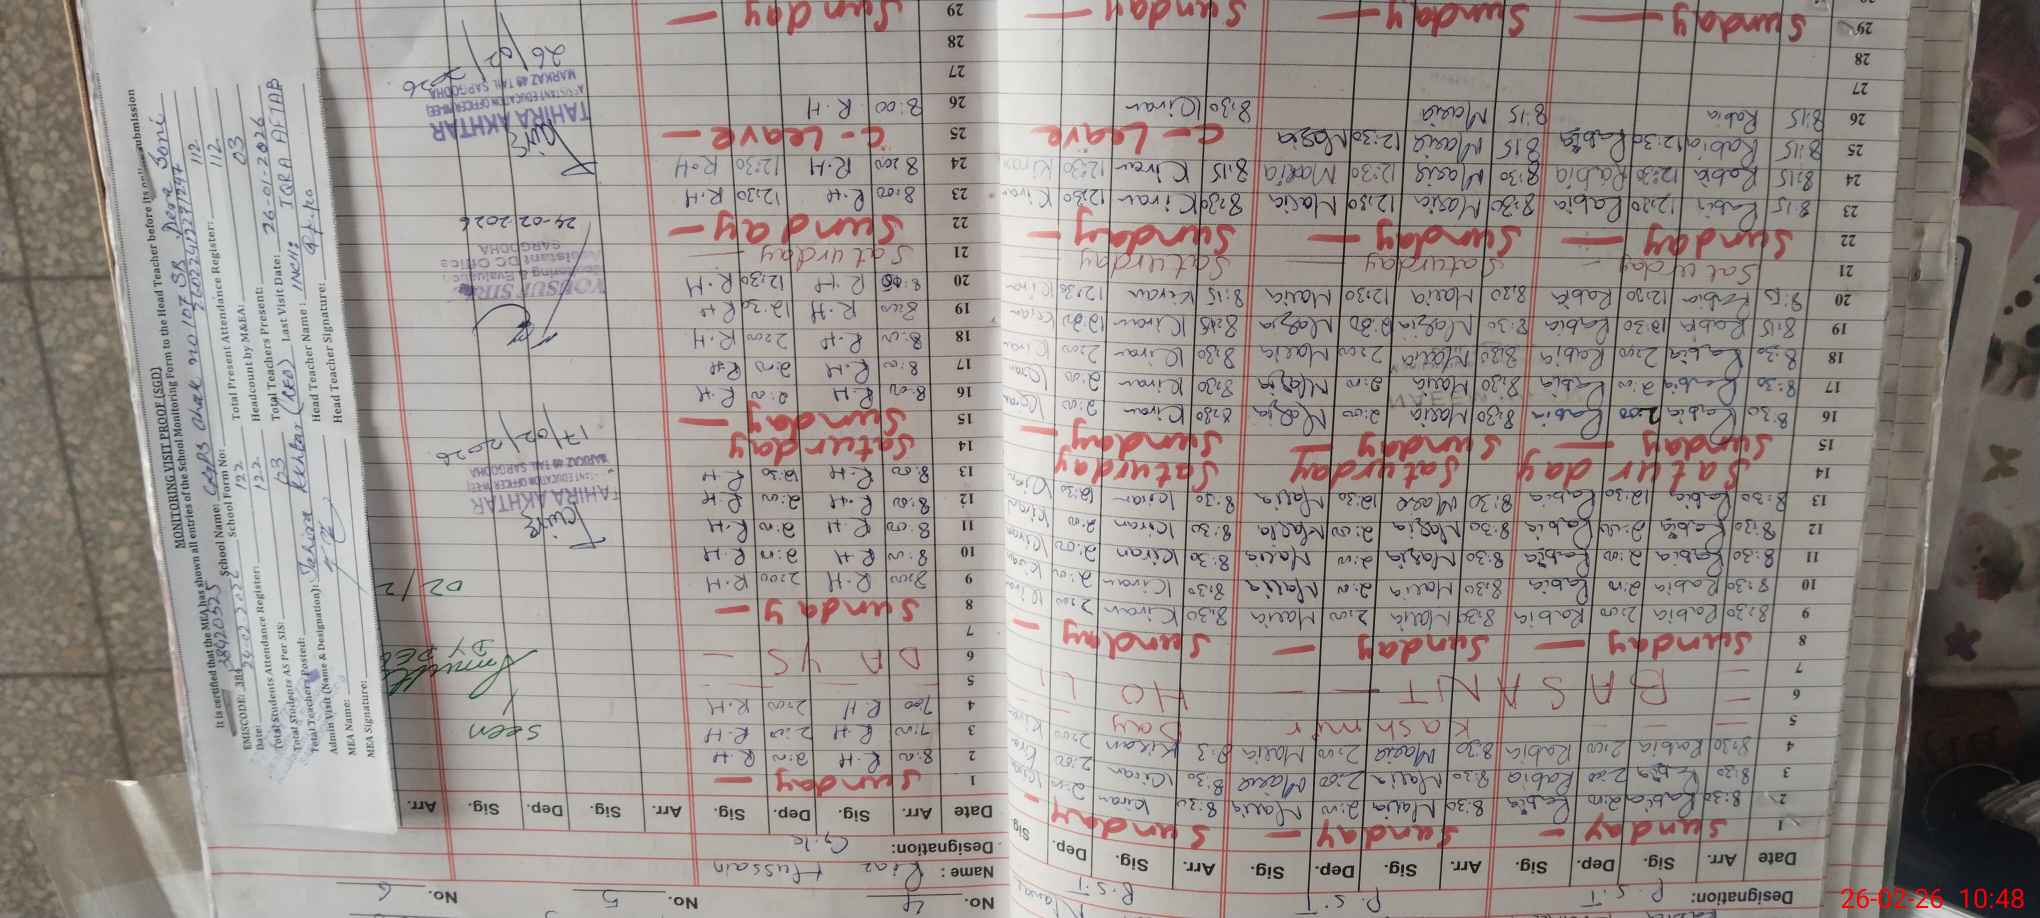 MONITORING VISIT PROOF (SGD)
It is certified that the MEA has shown all entries of the School Monitoring Form to the Head Teacher before its online submission
EMISCODE: 38420325 School Name: GGPS Chak no 107 SB Dera Soni
Date: 26-02-2026 School Form No:
Total Students Attendance Register: 122 Total Present Attendance Register: 112
Total Students AS Per SIS: 122 Headcount by M&EA: 112
Total Teachers Posted: 03 Total Teachers Present: 03
Admin Visit (Name & Designation): Tahira Akhtar (AEO) Last Visit Date: 26-01-2026
MEA Name: Head Teacher Name: IQRA AFTAB
MEA Signature: Head Teacher Signature:
No. 4 No. 5 No. 6
Name: Riaz Hussain
Designation:
Date Arr. Sig. Dep. Sig. Arr. Sig. Dep. Sig. Arr.
1 Sunday
2 8:00 R.H 2:00 R.H
3 R.H 2:00 R.H
4 R.H 2:00 R.H
5
6 DAYS
7
8 Sunday
9 8:00 R.H 2:00 R.H
10 8:00 R.H 2:00 R.H
11 8:00 R.H 2:00 R.H
12 8:00 R.H 2:00 R.H
13 8:00 R.H 12:30 R.H
14 Saturday
15 Sunday
16 8:00 R.H 2:00 R.H
17 8:00 R.H 2:00 R.H
18 8:00 R.H 2:00 R.H
19 8:00 R.H 12:30 R.H
20 8:00 R.H 12:30 R.H
21 Saturday
22 Sunday
23 8:00 R.H 12:30 R.H
24 8:00 R.H 12:30 R.H
25 C-Leave
26 8:00 R.H
27
28
29 Sunday
Seen
TAHIRA AKHTAR
ASSISTANT EDUCATION OFFICER (WEE)
MARKAZ 48 TAIL SARGODHA
17/02/2026
24-02-2026
TAHIRA AKHTAR
ASSISTANT EDUCATION OFFICER (WEE)
MARKAZ 48 TAIL SARGODHA
26/02/2026
Designation: P.S.T P.S.T P.S.T
Date Arr. Sig. Dep. Sig. Arr. Sig. Dep. Sig. Arr. Sig. Dep. Sig.
1 Sunday Sunday Sunday
2 8:30 Rabia 2:00 Rabia 8:30 Maria 2:00 Maria 8:30 Kiran 2:00
3 8:30 Rabia 2:00 Rabia 8:30 Maria 2:00 Maria 8:30 Kiran 2:00
4 8:30 Rabia 2:00 Rabia 8:30 Maria 2:00 Maria 8:3 Kiran 2:00 Kiran
5 Kashmir Day
6 BASANT HOLI
7
8 Sunday Sunday Sunday
9 8:30 Rabia 2:00 Rabia 8:30 Maria 2:00 Maria 8:30 Kiran 2:00 Kiran
10 8:30 Rabia 2:00 Rabia 8:30 Maria 2:00 Maria 8:30 Kiran 2:00 Kiran
11 8:30 Rabia 2:00 Rabia 8:30 Maria 2:00 Maria 8:30 Kiran 2:00 Kiran
12 8:30 Rabia 2:00 Rabia 8:30 Maria 2:00 Maria 8:30 Kiran 2:00 Kiran
13 8:30 Rabia 12:30 Rabia 8:30 Maria 12:30 Maria 8:30 Kiran 12:30 Kiran
14 Saturday Saturday Saturday
15 Sunday Sunday Sunday
16 8:30 Rabia 2:00 Rabia 8:30 Maria 2:00 Maria 8:30 Kiran 2:00 Kiran
17 8:30 Rabia 2:00 Rabia 8:30 Maria 2:00 Maria 8:30 Kiran 2:00 Kiran
18 8:30 Rabia 2:00 Rabia 8:30 Maria 2:00 Maria 8:30 Kiran 2:00 Kiran
19 8:15 Rabia 12:30 Rabia 8:30 Maria 12:30 Maria 8:15 Kiran Kiran
20 8:15 Rabia 12:30 Rabia 8:30 Maria 12:30 Maria 8:15 Kiran 12:30 Kiran
21 Saturday Saturday Saturday
22 Sunday Sunday Sunday
23 8:15 Rabia 12:30 Rabia 8:30 Maria 12:30 Maria 8:30 Kiran 12:30 Kiran
24 8:15 Rabia 12:30 Rabia 8:30 Maria 12:30 Maria 8:15 Kiran 12:30 Kiran
25 8:15 Rabia 12:30 Rabia 8:15 Maria 12:30 Maria C-Leave
26 8:15 Rabia 8:15 Maria 8:30 Kiran
27
28
29 Sunday Sunday Sunday
26-02-26 10:48